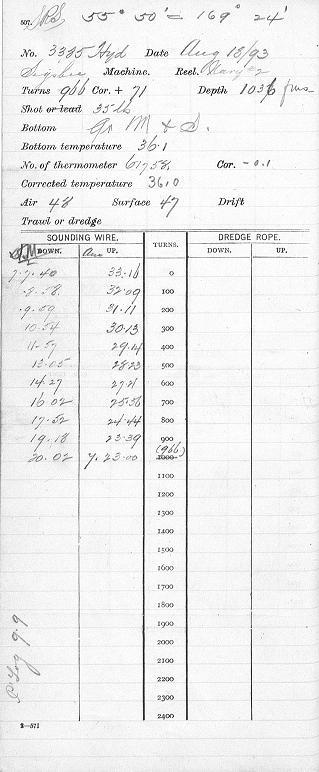 507. 55° 50' = 169° 24'
No. 3335 Hyd Date Aug 18/93
Sigsbee Machine. Reel.
Turns 966 Cor. + 71 Depth 1036 fms
Shot or lead 35 lb
Bottom Gr M & S.
Bottom temperature 36.1
No. of thermometer 61758 Cor. -0.1
Corrected temperature 36.0
Air 48 Surface 47 Drift
Trawl or dredge
SOUNDING WIRE. TURNS. DREDGE ROPE.
DOWN. UP. DOWN. UP.
7.7.40 33.16 0
.8.58 32.09 100
.9.59 31.11 200
10.54 30.13 300
11.57 29.14 400
13.05 28.23 500
14.27 27.21 600
16.02 25.56 700
17.52 24.44 800
19.18 23.39 900
20.02 7.23.00 (966) 1000
1100
1200
1300
1400
1500
1600
1700
1800
1900
2000
2100
2200
2300
2400
P Log 9.9
2—571